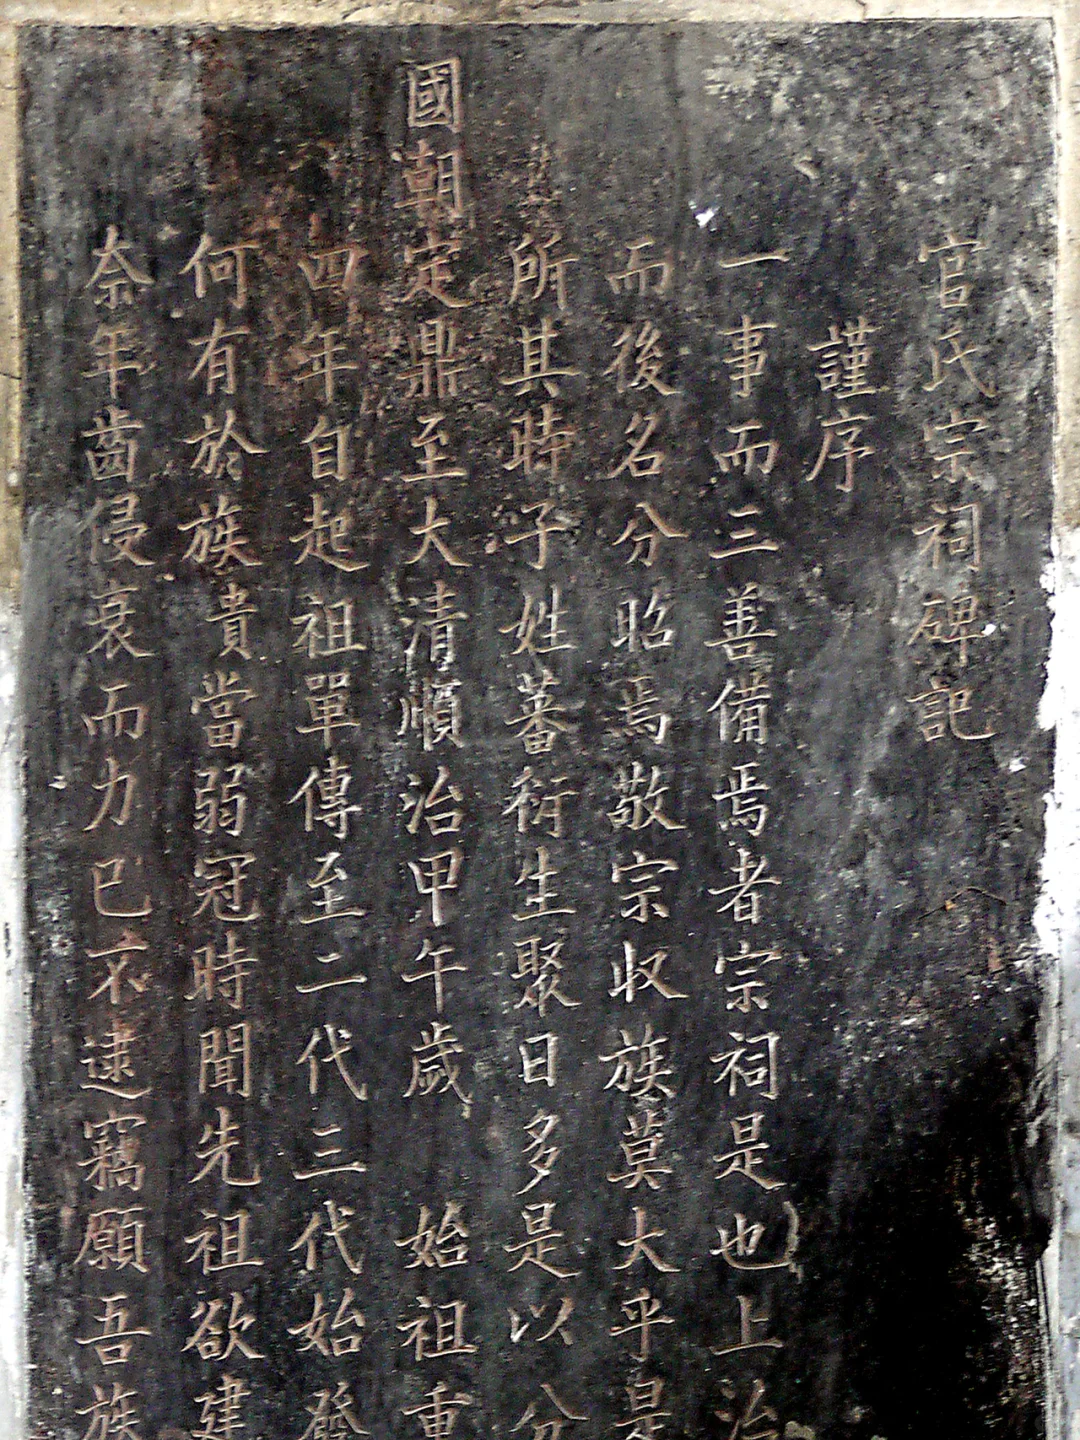 官氏宗祠碑記
謹序
一事而三善備焉者宗祠是也上治
而後名分昭焉敬宗收族莫大乎是
所其時子姓蕃衍生聚日多是以分
國朝定鼎至大清順治甲午歲 始祖重
四年自起祖單傳至二代三代始發
何有於族貴當弱冠時聞先祖欲建
奈年齒侵衰而力已不逮竊願吾族